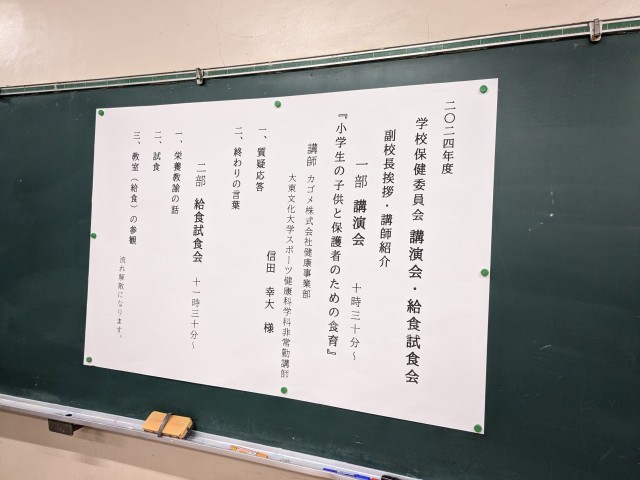 二〇二四年度
学校保健委員会 講演会・給食試食会
副校長挨拶・講師紹介
一部 講演会 十時三十分～
『小学生の子供と保護者のための食育』
講師 カゴメ株式会社健康事業部
大東文化大学スポーツ健康科学科非常勤講師
信田 幸大 様
一、質疑応答
二、終わりの言葉
二部 給食試食会 十一時三十分～
一、栄養教諭の話
二、試食
三、教室（給食）の参観
流れ解散になります。